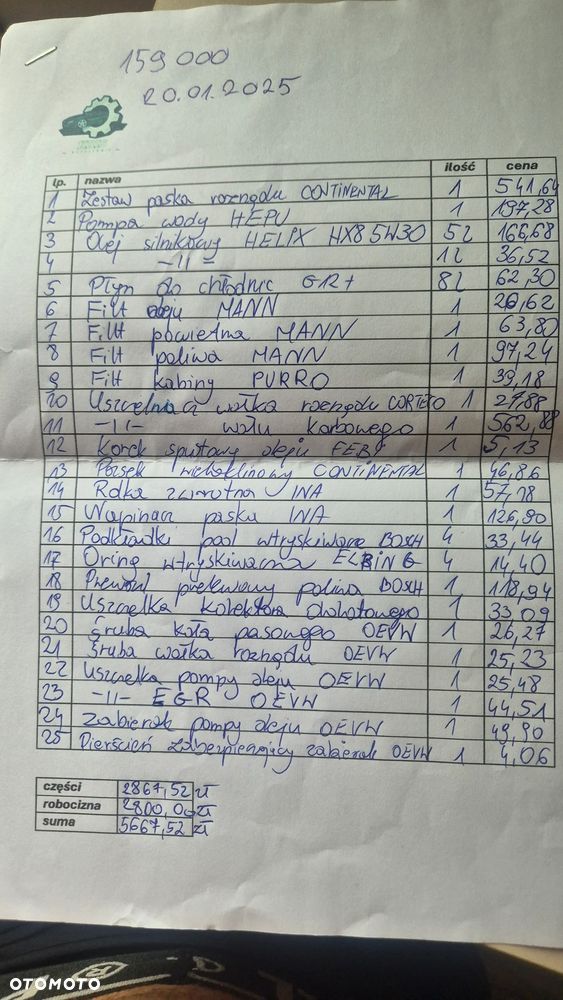 159 000
20.01.2025
lp. nazwa ilość cena
1 Zestaw paska rozrządu CONTINENTAL 1 541,64
2 Pompa wody HEPU 1 197,28
3 Olej silnikowy HELIX HX8 5W30 5l 166,68
4 -11- 1l 36,52
5 Płyn do chłodnic G12+ 8l 62,30
6 Filt oleju MANN 1 26,62
7 Filt powietrza MANN 1 63,80
8 Filt paliwa MANN 1 97,24
9 Filt kabiny PURRO 1 39,18
10 Uszczelniacz wałka rozrządu CORTECO 1 27,88
11 -11- wału korbowego 1 562,88
12 Korek spustowy oleju FEBI 1 5,13
13 Pasek wieloklinowy CONTINENTAL 1 46,86
14 Rolka zwrotna INA 1 57,78
15 Napinacz paska INA 1 126,90
16 Podkładki pod wtryskiwacze BOSCH 4 33,44
17 Oring wtryskiwacza ELRING 4 14,40
18 Przewód przelewowy paliwa BOSCH 1 118,94
19 Uszczelka kolektora dolotowego 1 33,09
20 Śruba koła pasowego OEVW 1 26,27
21 Śruba wałka rozrządu OEVW 1 25,23
22 Uszczelka pompy oleju OEVW 1 25,48
23 -11- EGR OEVW 1 44,51
24 Zabierak pompy oleju OEVW 1 49,90
25 Pierścień zabezpieczający zabierak OEVW 1 4,06
części 2867,52 zł
robocizna 2800,00 zł
suma 5667,52 zł
OTOMOTO